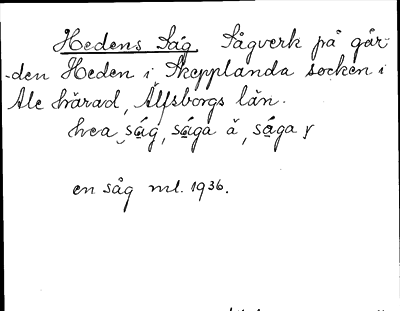 Hedens Såg Sågverk på går-
den Heden i Skepplanda socken i
Ale härad, Älfsborgs län.
hea såg, såga å, såga
en såg ml. 1936.